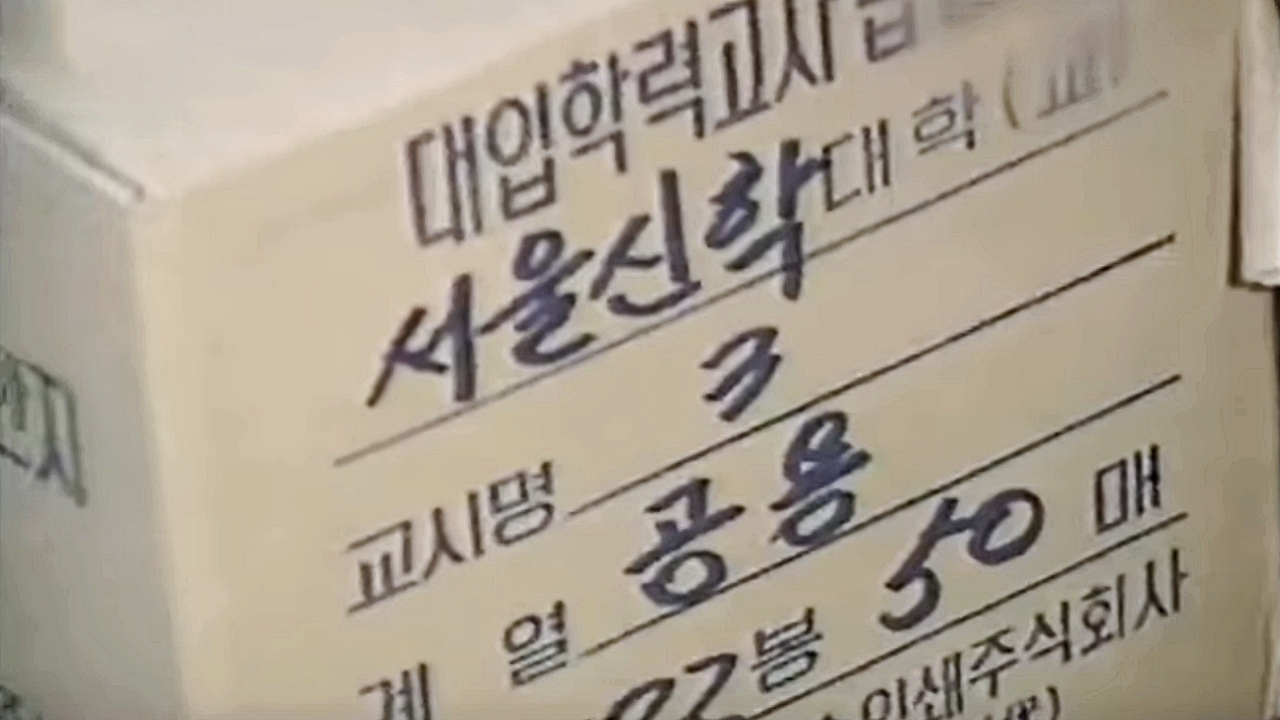 대입학력고사
서울신학대학(교)
교시명 3
계열 공용
봉 50매
인쇄주식회사